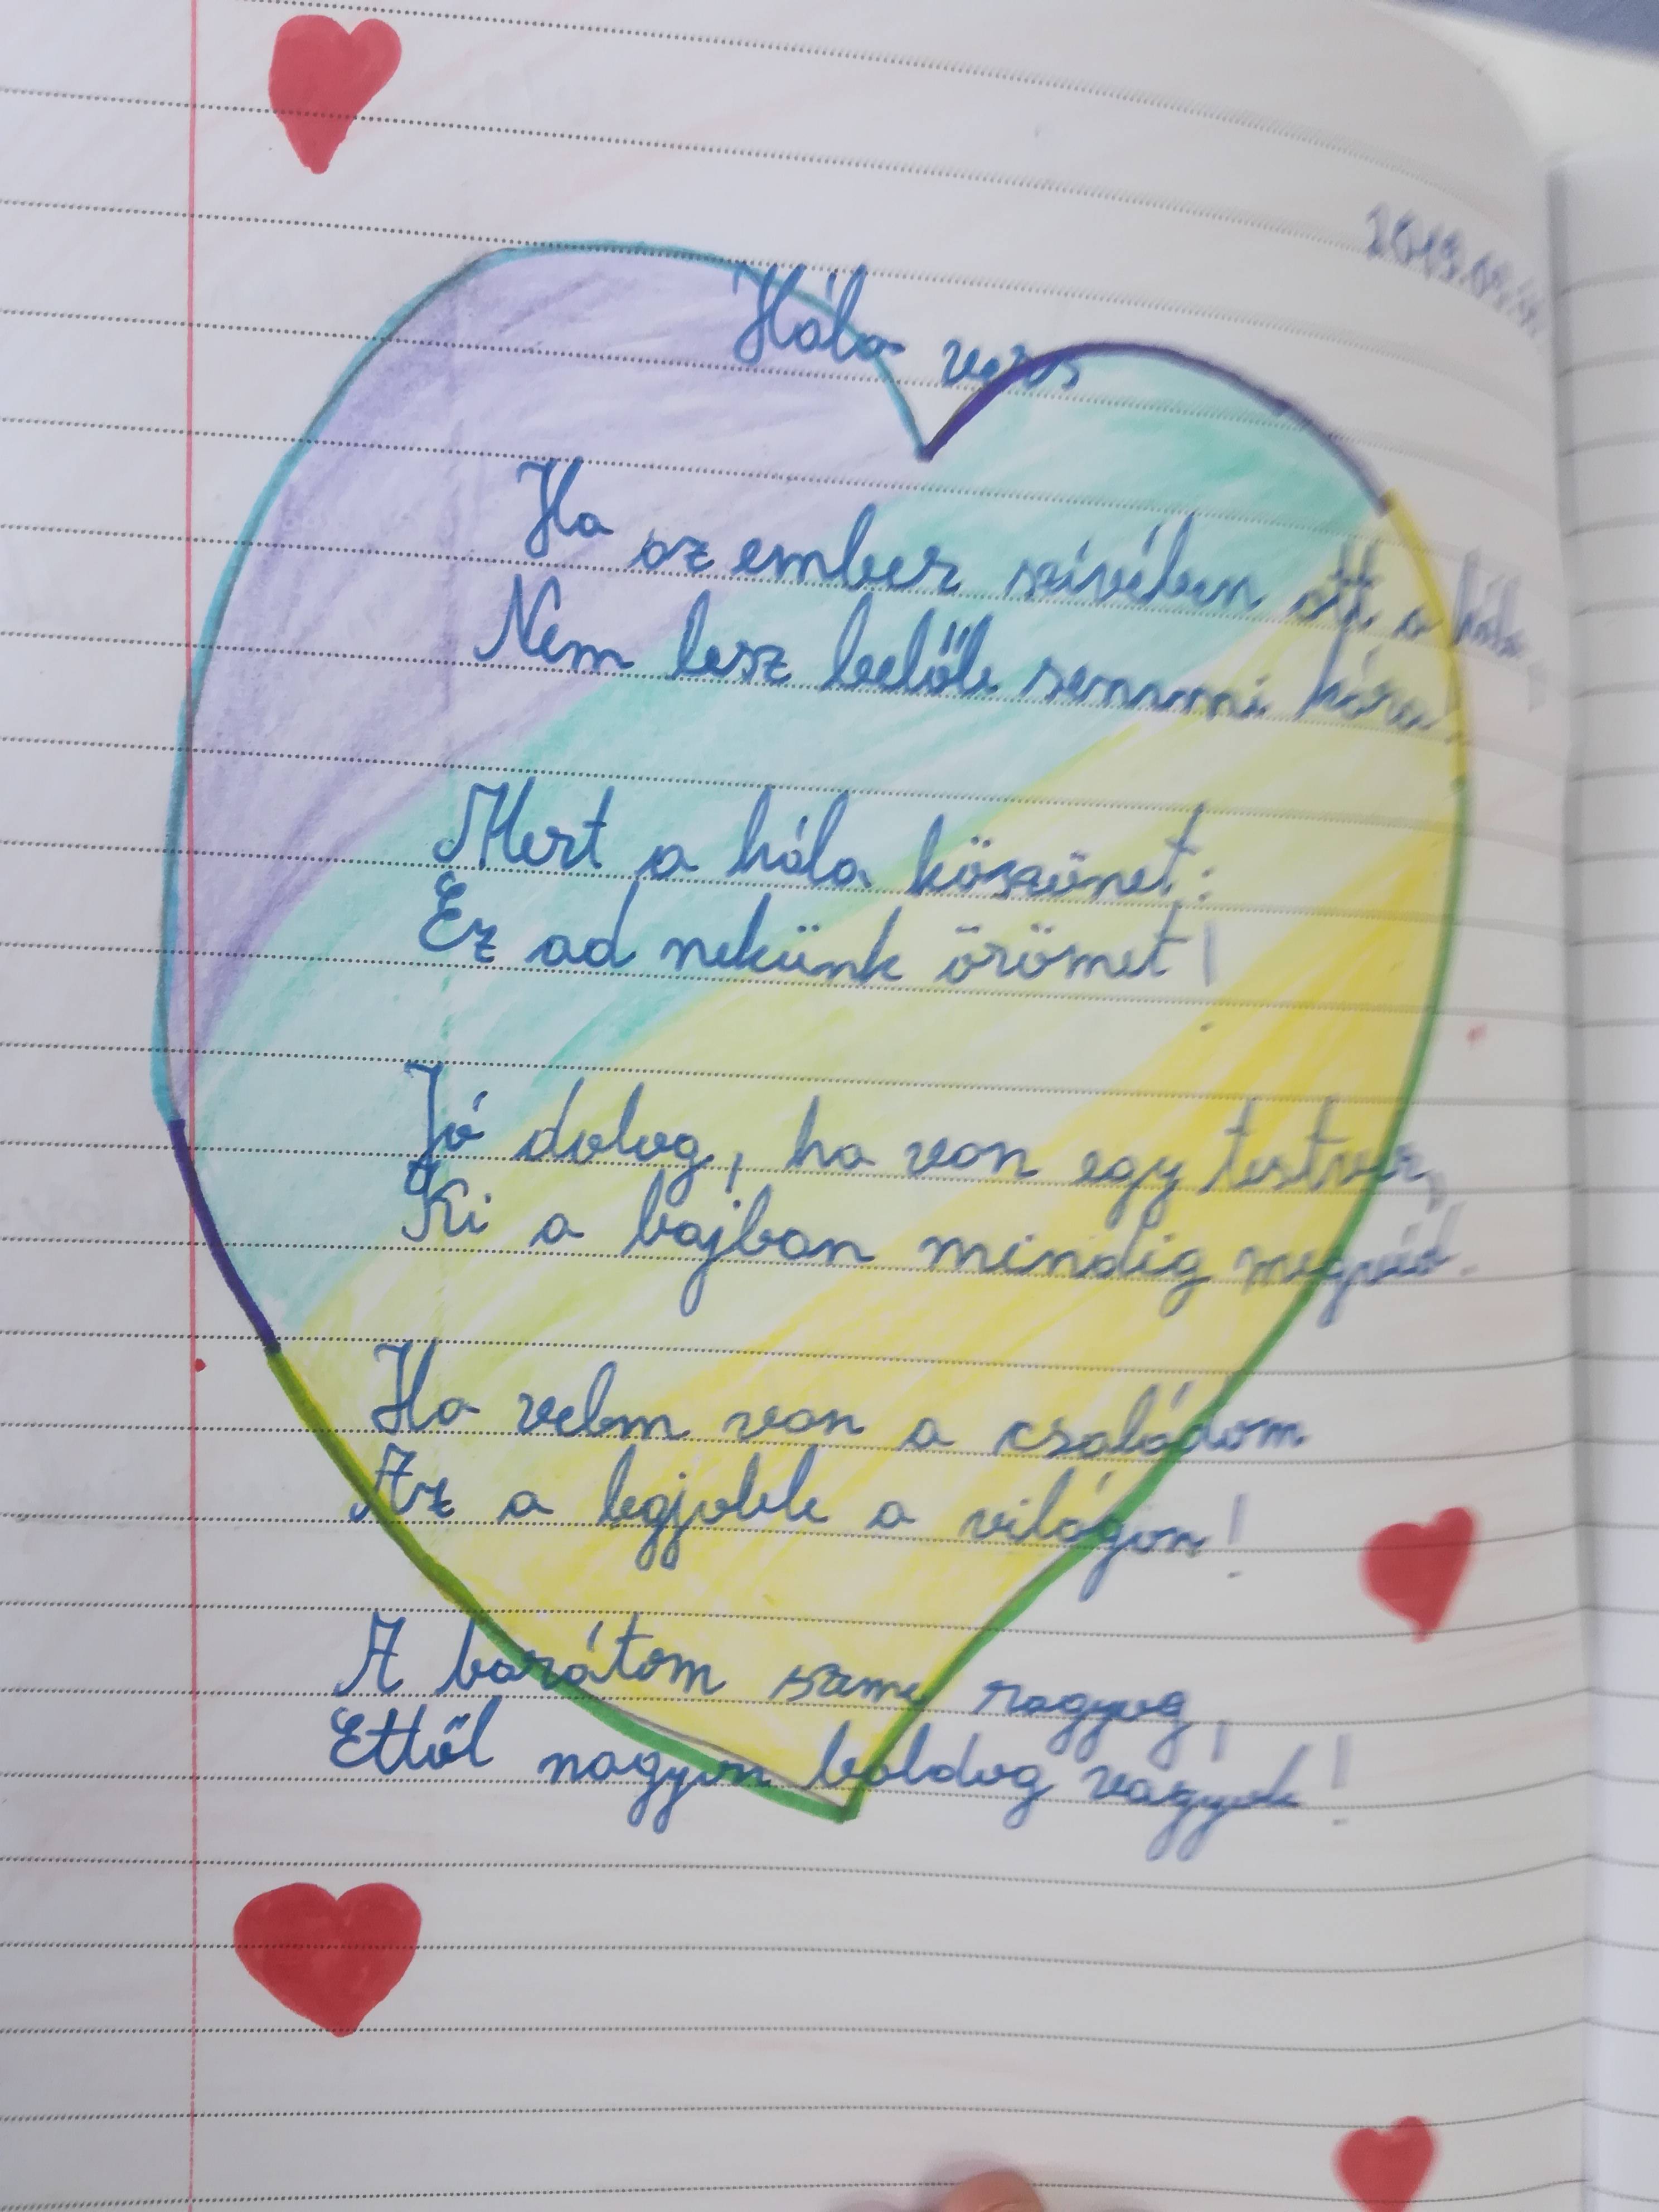 Hála vers
Ha az ember szívében ott a hála,
Nem lesz belőle semmi kára!
Mert a hála köszönet:
Ez ad nekünk örömet!
Jó dolog, ha van egy testvér,
Ki a bajban mindig megvéd.
Ha velem van a családom
Az a legjobb a világon!
A barátom szeme ragyog,
Ettől nagyon boldog vagyok!